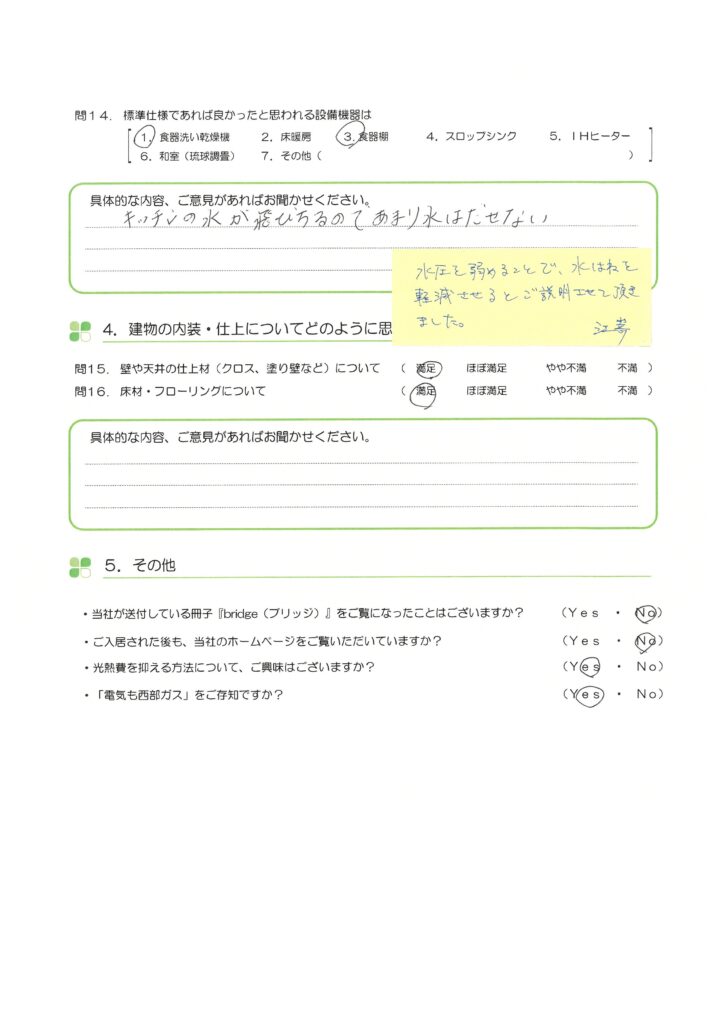 問14. 標準仕様であれば良かったと思われる設備機器は
1. 食器洗い乾燥機 2. 床暖房 3. 食器棚 4. スロップシンク 5. IHヒーター
6. 和室（琉球調畳） 7. その他（ ）
具体的な内容、ご意見があればお聞かせください。
キッチンの水が飛びちるのであまり水はだせない
水圧を弱めることで、水はねを
軽減させるとご説明させて頂き
ました。
4. 建物の内装・仕上についてどのように思
問15. 壁や天井の仕上材（クロス、塗り壁など）について （ 満足 ほぼ満足 やや不満 不満 ）
問16. 床材・フローリングについて （ 満足 ほぼ満足 やや不満 不満 ）
具体的な内容、ご意見があればお聞かせください。
5. その他
・当社が送付している冊子『bridge（ブリッジ）』をご覧になったことはございますか？ （Yes ・ No）
・ご入居された後も、当社のホームページをご覧いただいていますか？ （Yes ・ No）
・光熱費を抑える方法について、ご興味はございますか？ （Yes ・ No）
・「電気も西部ガス」をご存知ですか？ （Yes ・ No）